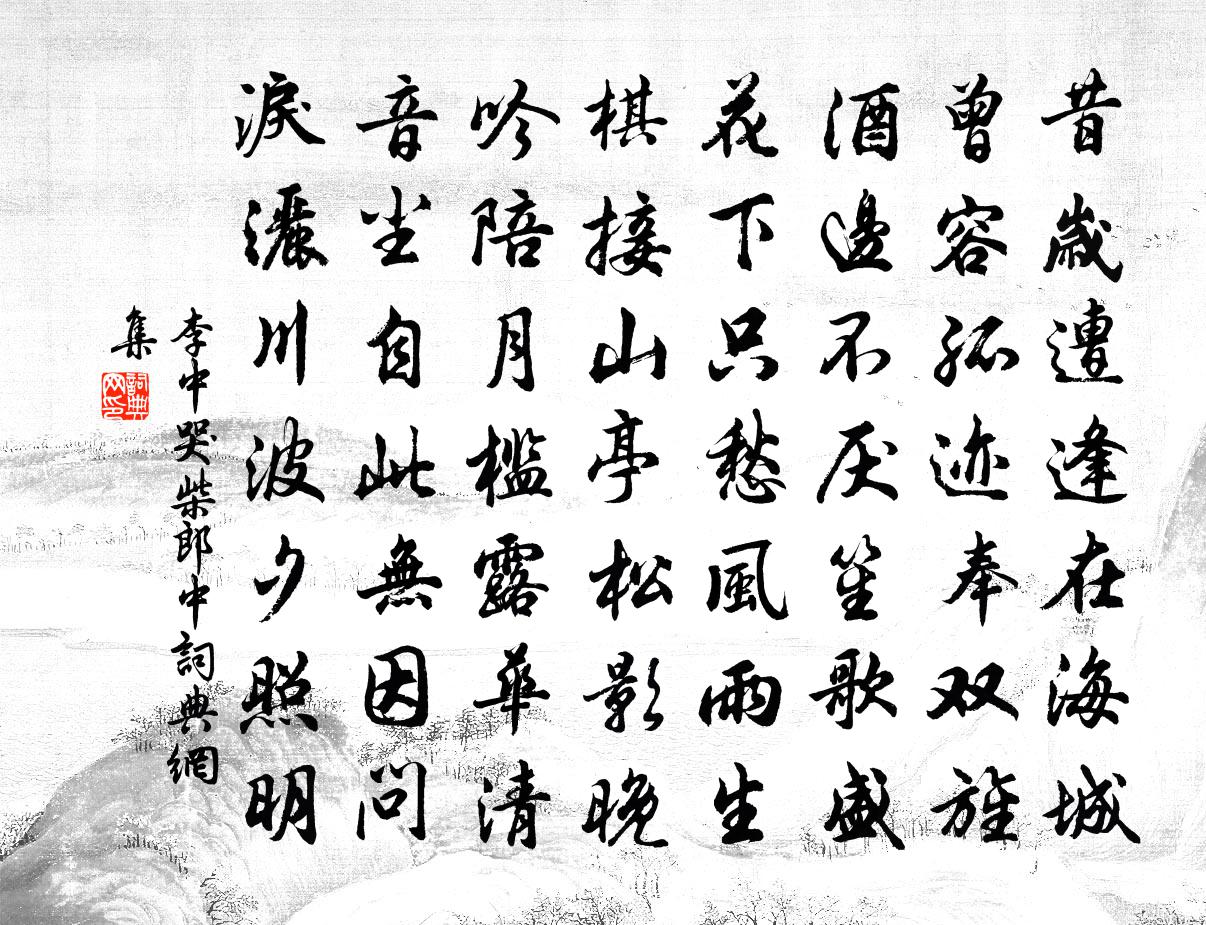 昔歲遭逢在海城
曾容孤迹奉双旌
酒邊不厌笙歌盛
花下只愁風雨生
棋接山亭松影晚
吟陪月檻露華清
音尘自此無因問
淚灑川波夕照明
李中哭柴郎中詞典網
集
詞典
网印